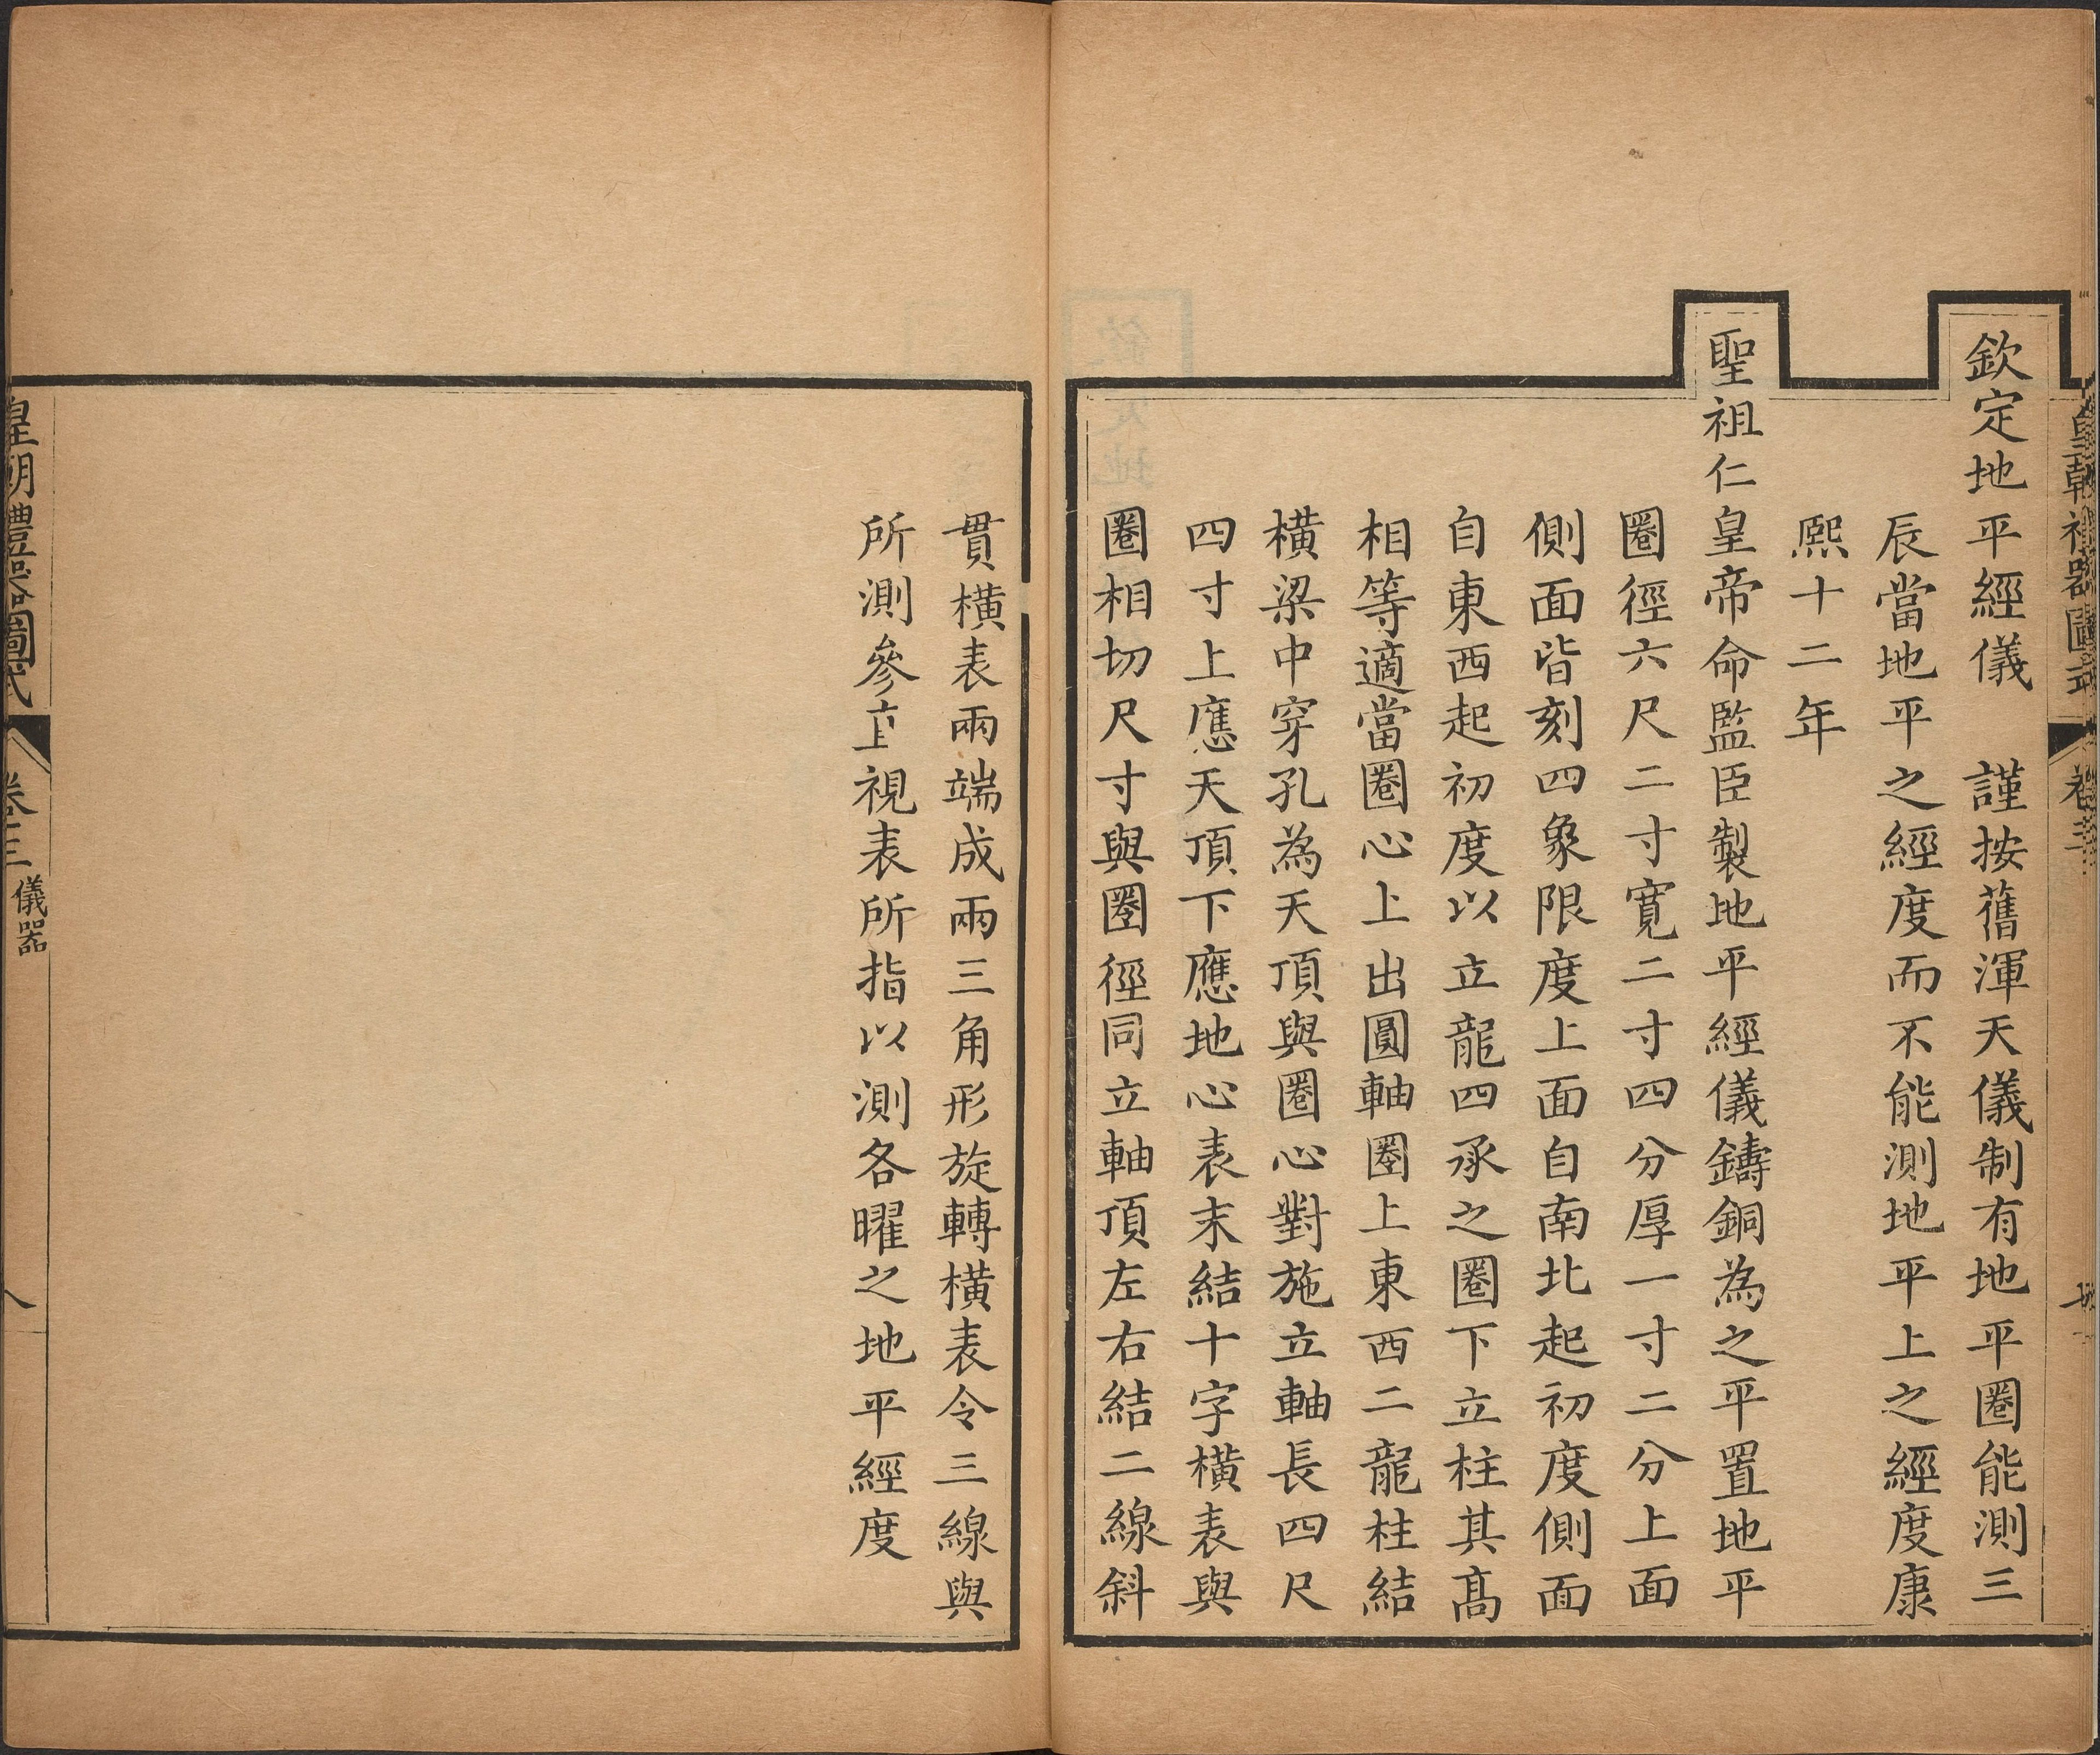 欽定地平經儀　謹按舊渾天儀制有地平圈能測三
辰當地平之經度而不能測地平上之經度康
熙十二年
聖祖仁皇帝命監臣製地平經儀鑄銅為之平置地平
圈徑六尺二寸寬二寸四分厚一寸二分上面
側面皆刻四象限度上面自南北起初度側面
自東西起初度以立龍四承之圈下立柱其高
相等適當圈心上出圓軸圈上東西二龍柱結
橫梁中穿孔為天頂與圈心對施立軸長四尺
四寸上應天頂下應地心表末結十字橫表與
圈相切尺寸與圈徑同立軸頂左右結二線斜
貫橫表兩端成兩三角形旋轉橫表令三線與
所測參直視表所指以測各曜之地平經度
皇朝禮器圖式
卷三
儀器
八
皇朝禮器圖式
卷三